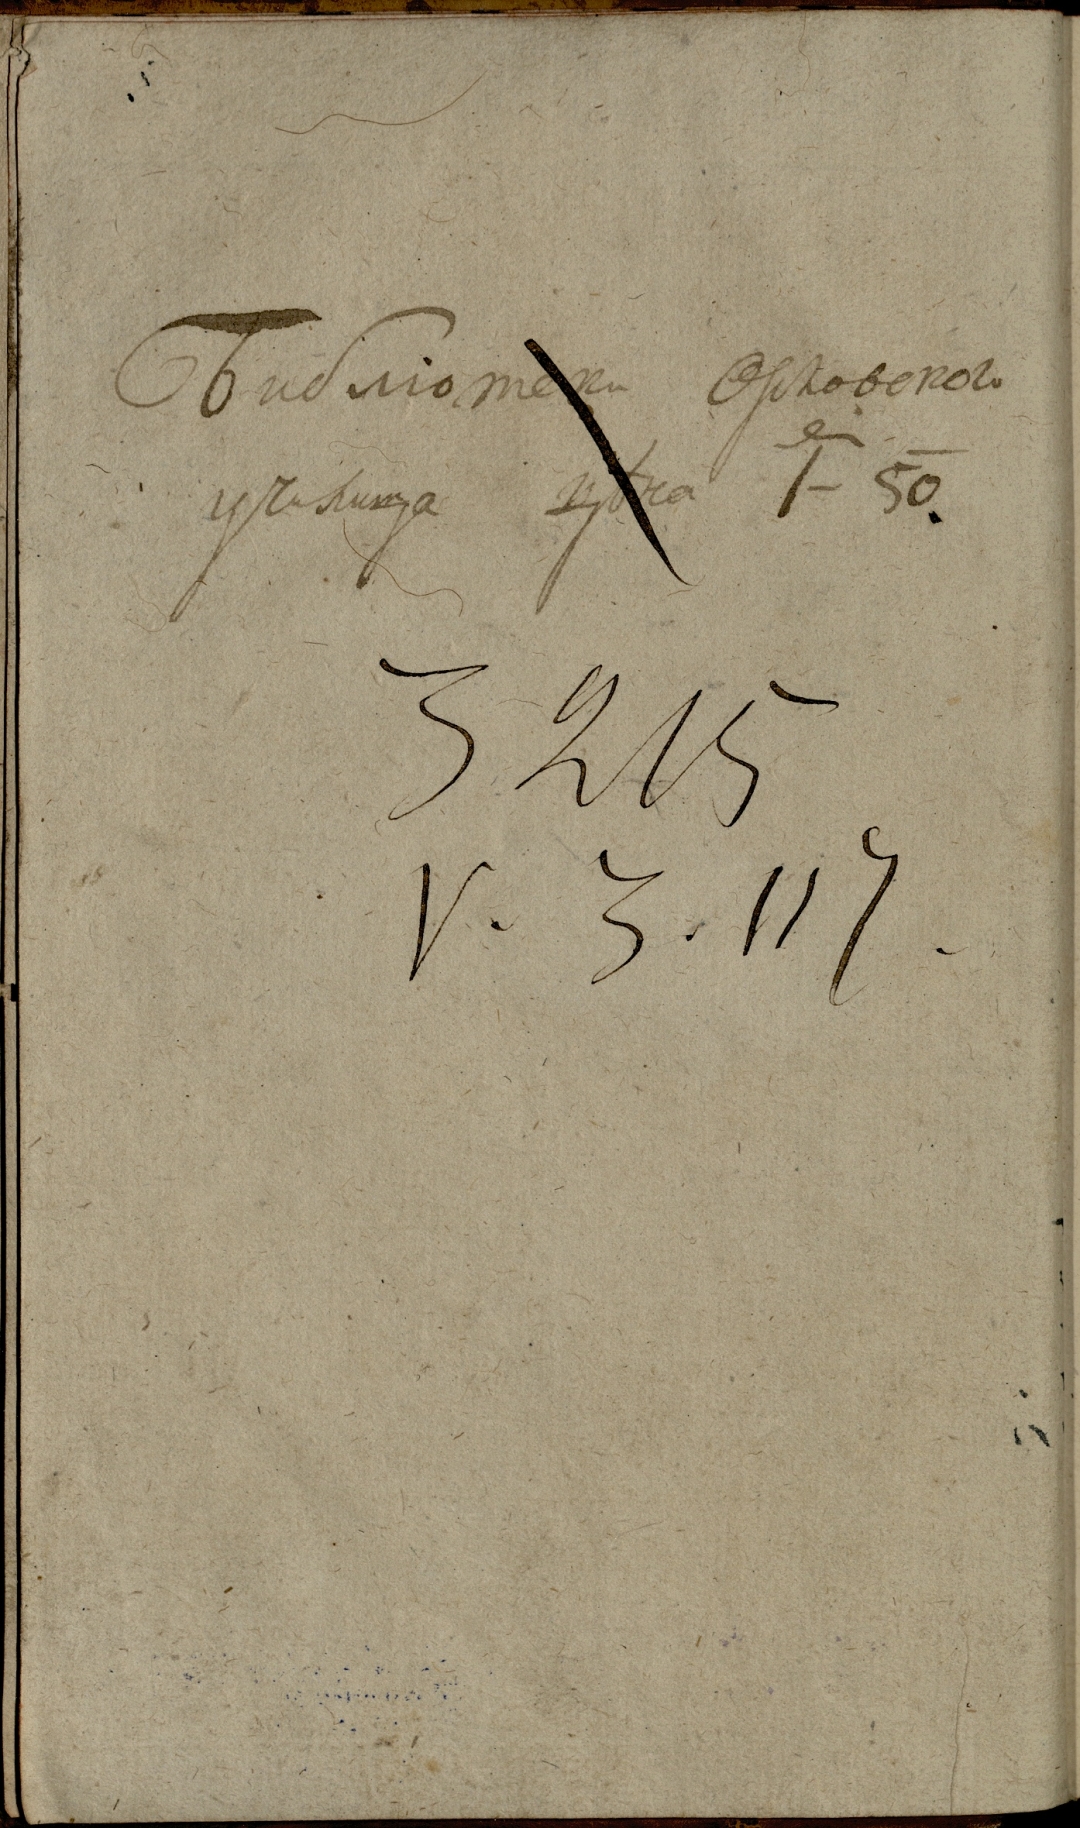 Библіотеки Орловского
училища цѣна 1- 50.
3215
V. 3. 117.